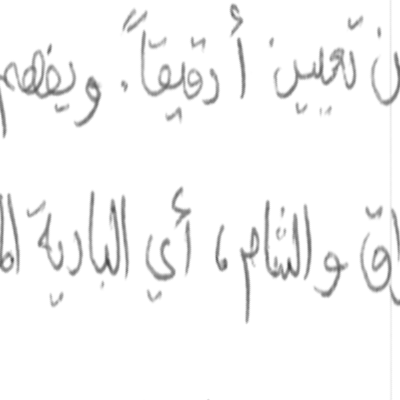 ن تعيين أ دقيقاً. ويفهم
اق والشام، أي البادية الم